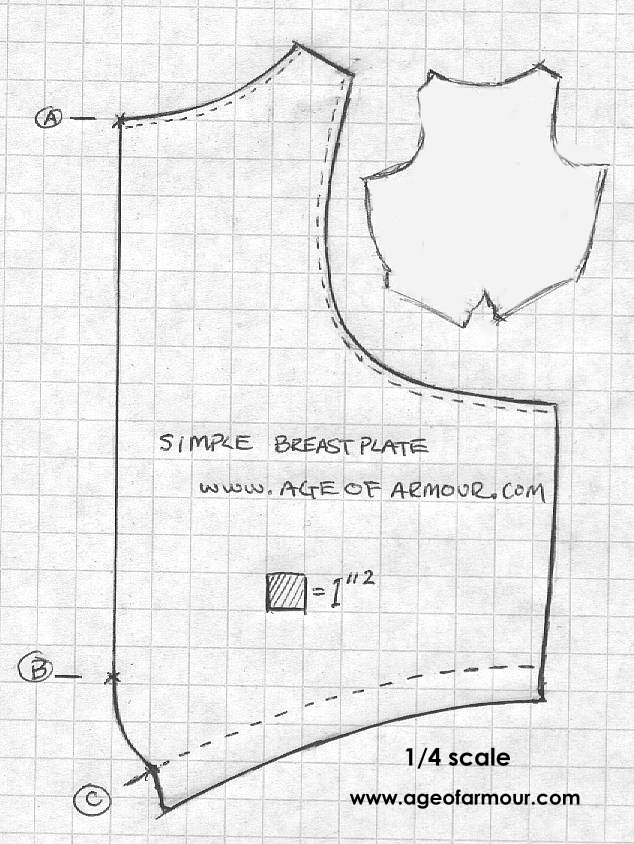 A
SIMPLE BREASTPLATE
WWW.AGEOFARMOUR.COM
= 1"²
B
1/4 scale
C
www.ageofarmour.com